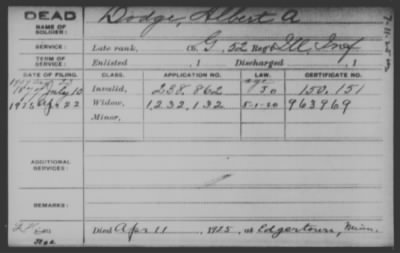 DEAD
NAME OF SOLDIER:
Dodge, Albert A
SERVICE:
Late rank, Co. G, 52 Reg't Ill. Inf
TERM OF SERVICE:
Enlisted , 1 Discharged , 1
DATE OF FILING. CLASS. APPLICATION NO. LAW. CERTIFICATE NO.
July 10 Invalid, 258.862 150.151
1925 Apr 22 Widow, 1.232.132 5-1-20 963969
Minor,
ADDITIONAL SERVICES:
REMARKS:
Died Apr 11, 1925, at Edgertown, Minn.